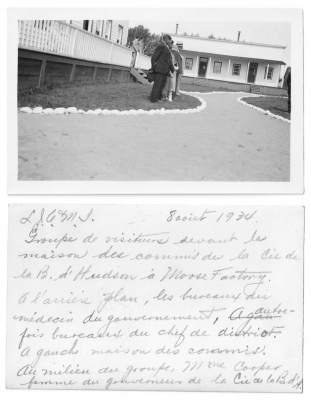 L.J.C.M.S. 8 août 1934.
Groupe de visiteurs devant la
maison des commis de la Cie de
la B. d'Hudson à Moose Factory.
A l'arrière plan, les bureaux du
médecin du gouvernement, autre-
fois bureaux du chef de district.
A gauche maison des commis.
Au milieu du groupe, Mme Cooper
femme du gouverneur de la Cie de la B. d'H.